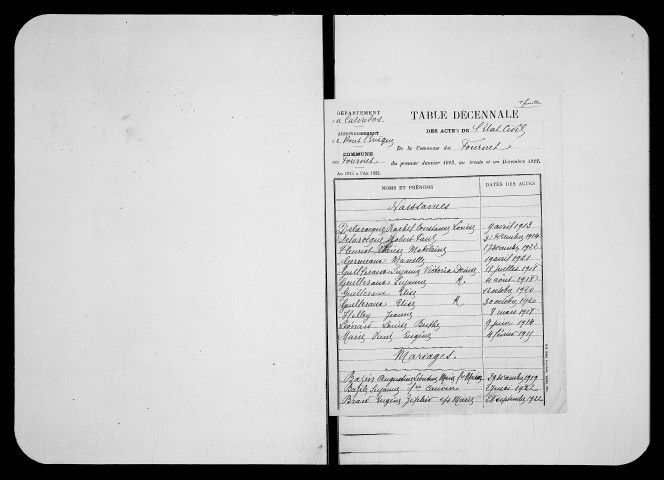 1e feuille
DÉPARTEMENT
du Calvados
ARRONDISSEMENT
de Pont l'Evêque
COMMUNE
de Fournet
An 1913 à l'An 1922.
TABLE DÉCENNALE
DES ACTES DE l'État Civil
De la Commune de Fournet
du premier Janvier 1913, au trente et un Décembre 1922.
NOMS ET PRÉNOMS DATES DES ACTES
Naissances
Delarocque Rachel Constance Louise 9 avril 1913
Delarocque Robert Paul 31 décembre 1914
Fleuriot Denise Madeleine 17 décembre 1922
Germain Marcelle 19 avril 1921
Guilleraux Suzanne Victoria Denise 18 juillet 1918
Guilleraux Suzanne R. 4 août 1918
Guilleraux Elise 12 octobre 1920
Guilleraux Elise R 30 octobre 1920
Halley Jeanne 7 mars 1918
Léonard Louise Berthe 9 juin 1914
Marie René Eugène 4 février 1915
Mariages.
29 décembre 1919
Bazile Suzanne 27 mai 1922
Eugène Marie 28 septembre 1922